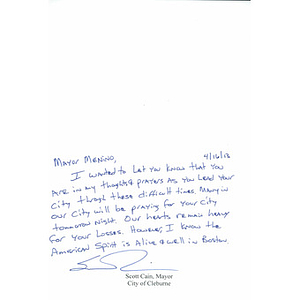 Mayor Menino,
4/16/13
I wanted to let you know that you
are in my thoughts & prayers as you lead your
city through these difficult times. Many in
our city will be praying for your city
tomorrow night. Our hearts remain heavy
for your losses. However, I know the
American Spirit is alive & well in Boston.
Scott Cain, Mayor
City of Cleburne